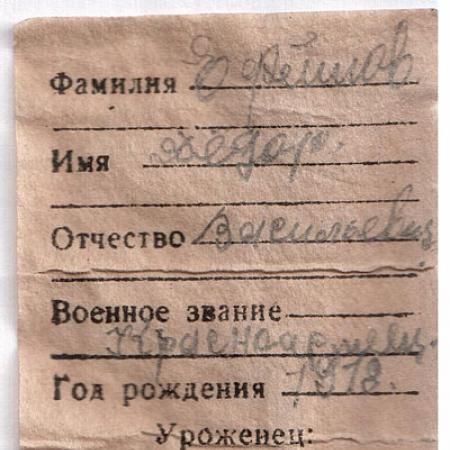 Фамилия
Имя Федор.
Отчество Васильевич
Военное звание
Красноармеец.
Год рождения 1918.
Уроженец: